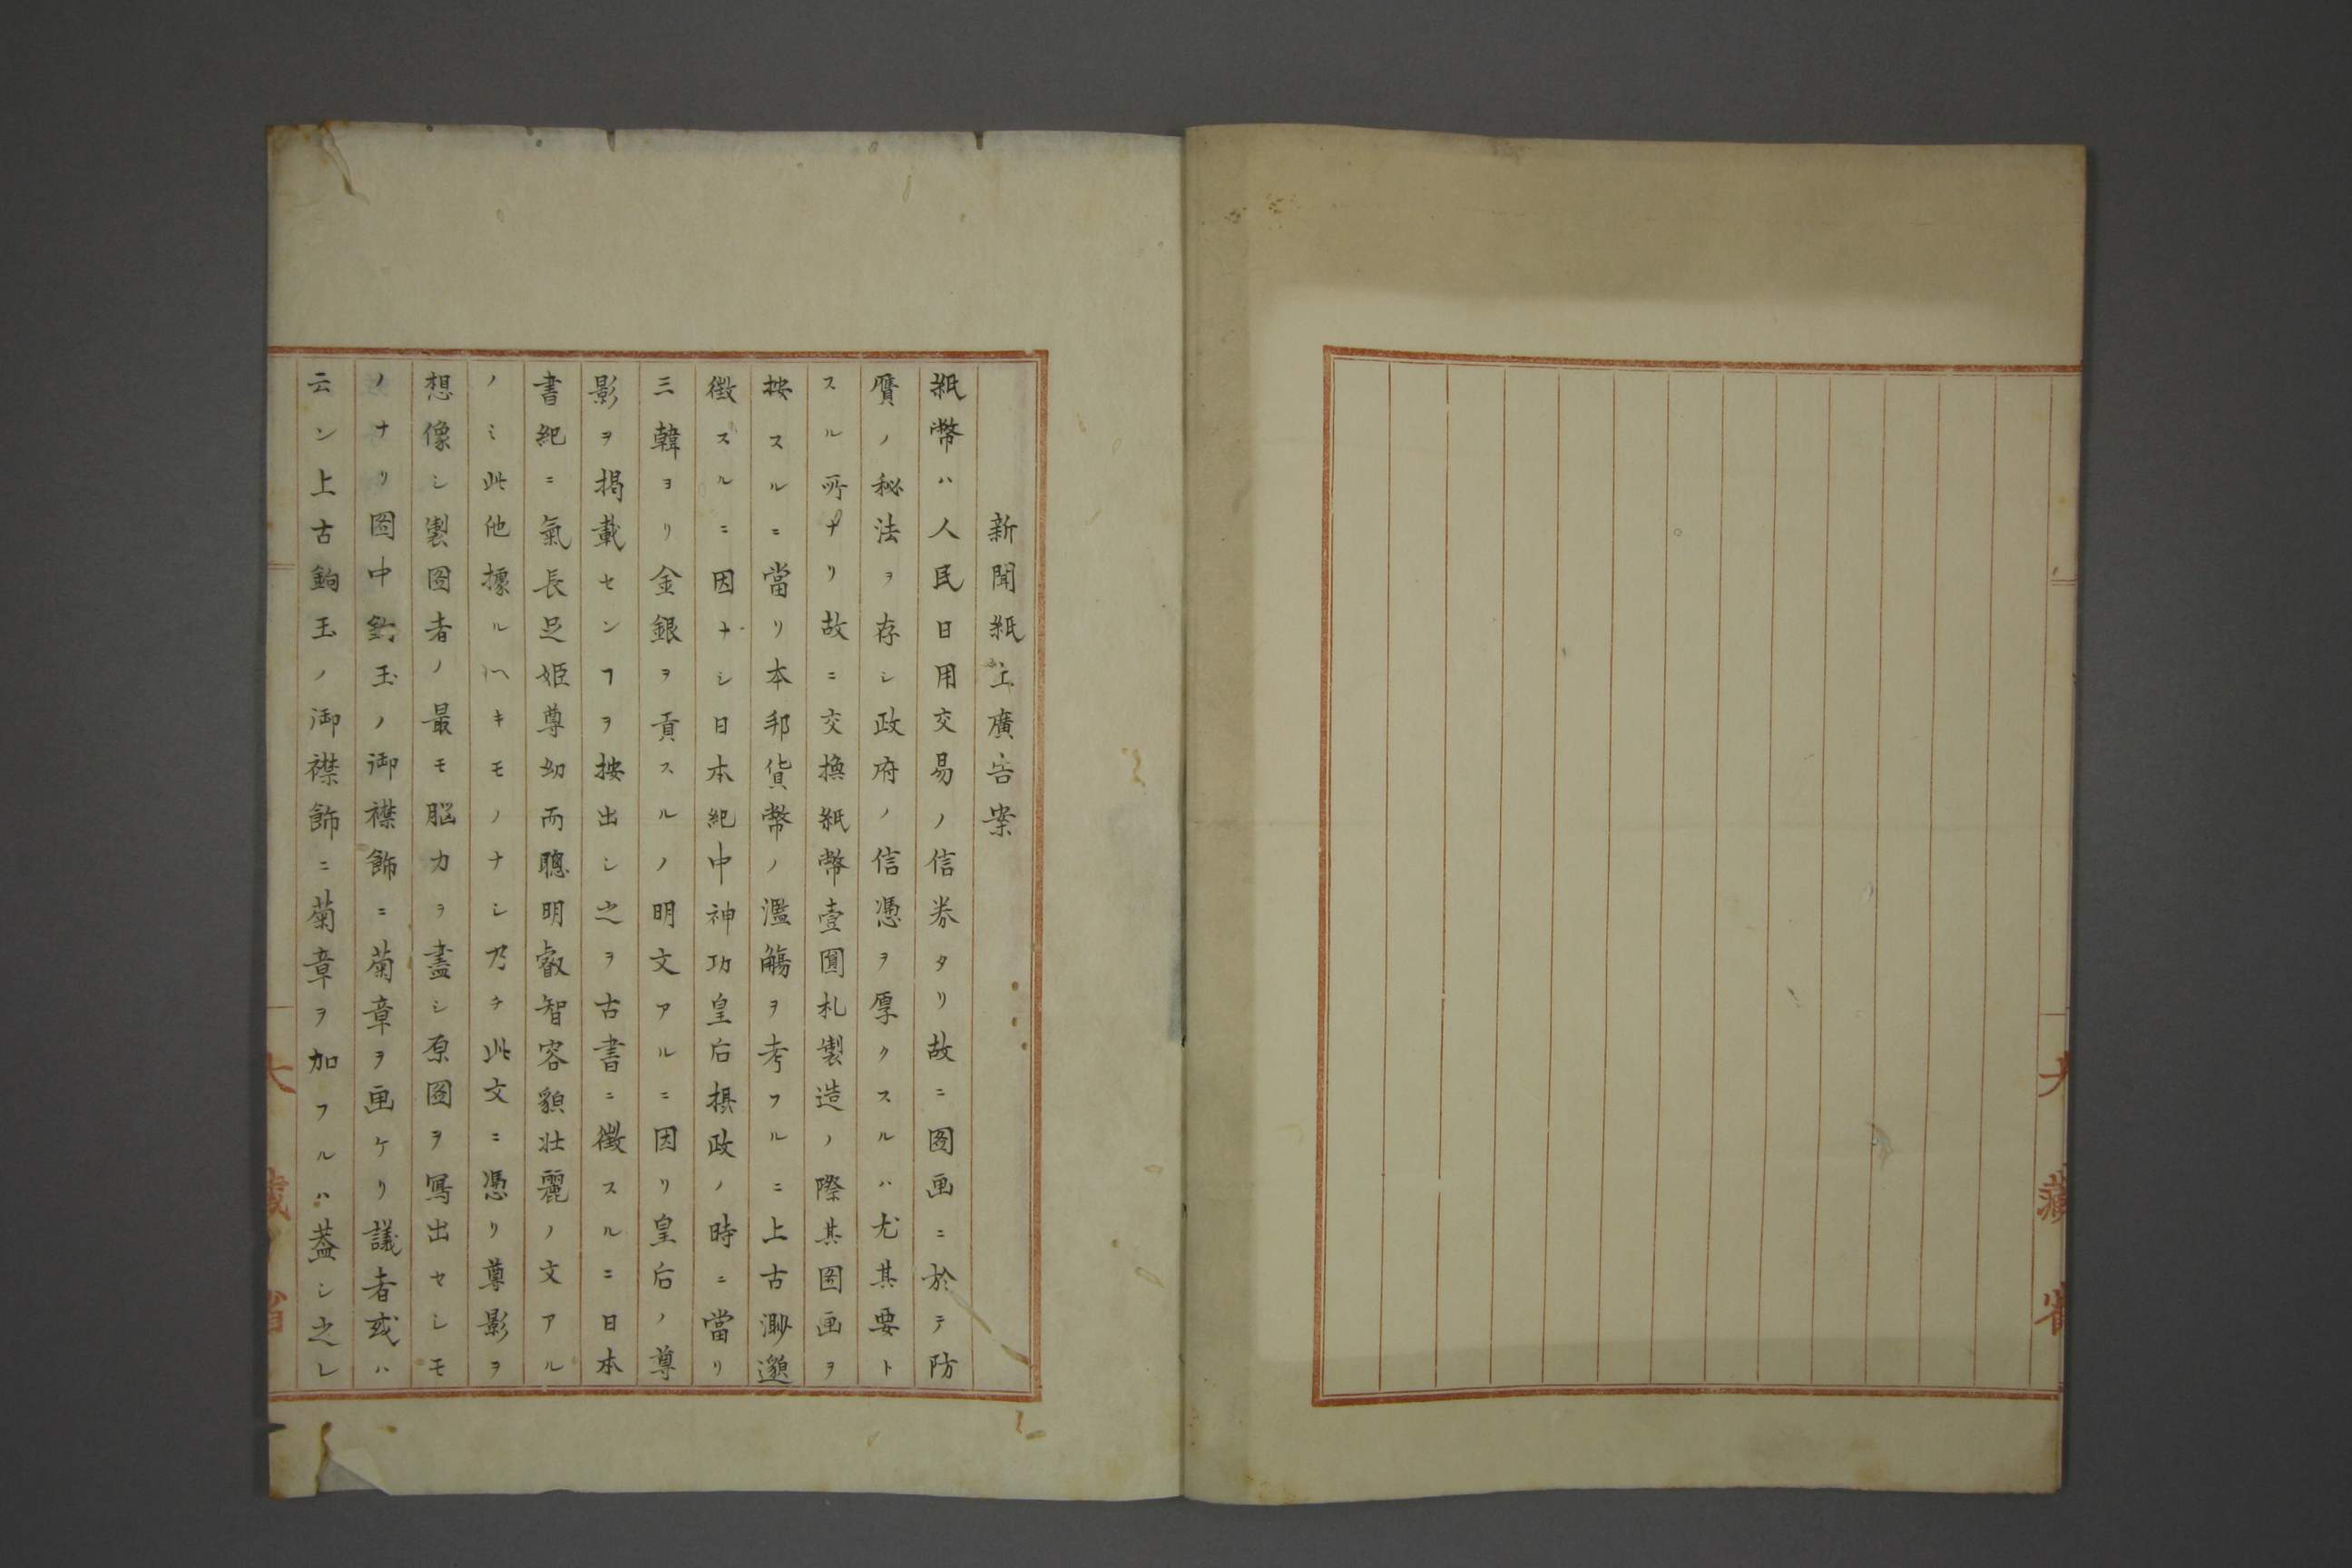 大藏省
新聞紙上廣告案
紙幣ハ人民日用交易ノ信券タリ故ニ圖画ニ於テ防
贋ノ秘法ヲ存シ政府ノ信憑ヲ厚クスルハ尤其要ト
スル所ナリ故ニ交換紙幣壹圓札製造ノ際其圖画ヲ
按スルニ當リ本邦貨幣ノ濫觴ヲ考フルニ上古渺邈
徴スルニ因ナシ日本紀中神功皇后摂政ノ時ニ當リ
三韓ヨリ金銀ヲ貢スルノ明文アルニ因リ皇后ノ尊
影ヲ掲載センヿヲ按出シ之ヲ古書ニ徴スルニ日本
書紀ニ氣長足姫尊幼而聰明叡智容貌壮麗ノ文アル
ノミ此他據ルヘキモノナシ乃チ此文ニ憑リ尊影ヲ
想像シ製圖者ノ最モ脳力ヲ盡シ原圖ヲ寫出セシモ
ノナリ圖中鈎玉ノ御襟飾ニ菊章ヲ画ケリ議者或ハ
云ン上古鈎玉ノ御襟飾ニ菊章ヲ加フルハ葢シ之レ
大藏省